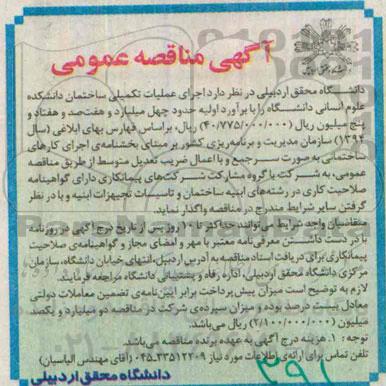 آگهی مناقصه عمومی
دانشگاه محقق اردبیلی در نظر دارد اجرای عملیات تکمیلی ساختمان دانشکده
علوم انسانی دانشگاه را با برآورد اولیه حدود چهل میلیارد و هفتصد و هفتاد و
پنج میلیون ریال (۴۰/۷۷۵/۰۰۰/۰۰۰) ریال، براساس فهارس بهای ابلاغی (سال
۱۳۹۴) سازمان مدیریت و برنامه‌ریزی کشور بر مبنای بخشنامه‌ی اجرای کارهای
ساختمانی به صورت سرجمع و با اعمال ضریب تعدیل متوسط از طریق مناقصه
عمومی، به شرکت یا گروه مشارکت شرکت‌های پیمانکاری دارای گواهینامه
صلاحیت کاری در رشته‌های ابنیه ساختمان و تاسیسات تجهیزات ابنیه و با در نظر
گرفتن سایر شرایط مندرج در مناقصه واگذار نماید.
متقاضیان واجد شرایط می توانند حداکثر تا ۱۰ روز پس از تاریخ درج آگهی در روزنامه
با در دست داشتن معرفی‌نامه معتبر با مهر و امضای مجاز و گواهینامه‌ی صلاحیت
پیمانکاری برای دریافت اسناد مناقصه به آدرس اردبیل، انتهای خیابان دانشگاه، سازمان
مرکزی دانشگاه محقق اردبیلی، اداره رفاه و پشتیبانی دانشگاه مراجعه فرمایند.
لازم به توضیح است میزان پیش‌پرداخت برابر آیین‌نامه‌ی تضمین معاملات دولتی
معادل بیست درصد بوده و میزان سپرده‌ی شرکت در مناقصه دو میلیارد و یکصد
میلیون (۲/۱۰۰/۰۰۰/۰۰۰) ریال می‌باشد.
توجه: ۱. هزینه درج آگهی به عهده برنده مناقصه می‌باشد.
تلفن تماس برای ارائه‌ی اطلاعات مورد نیاز ۳۳۵۱۲۲۰۹-۰۴۵ (آقای مهندس الیاسیان)
دانشگاه محقق اردبیلی